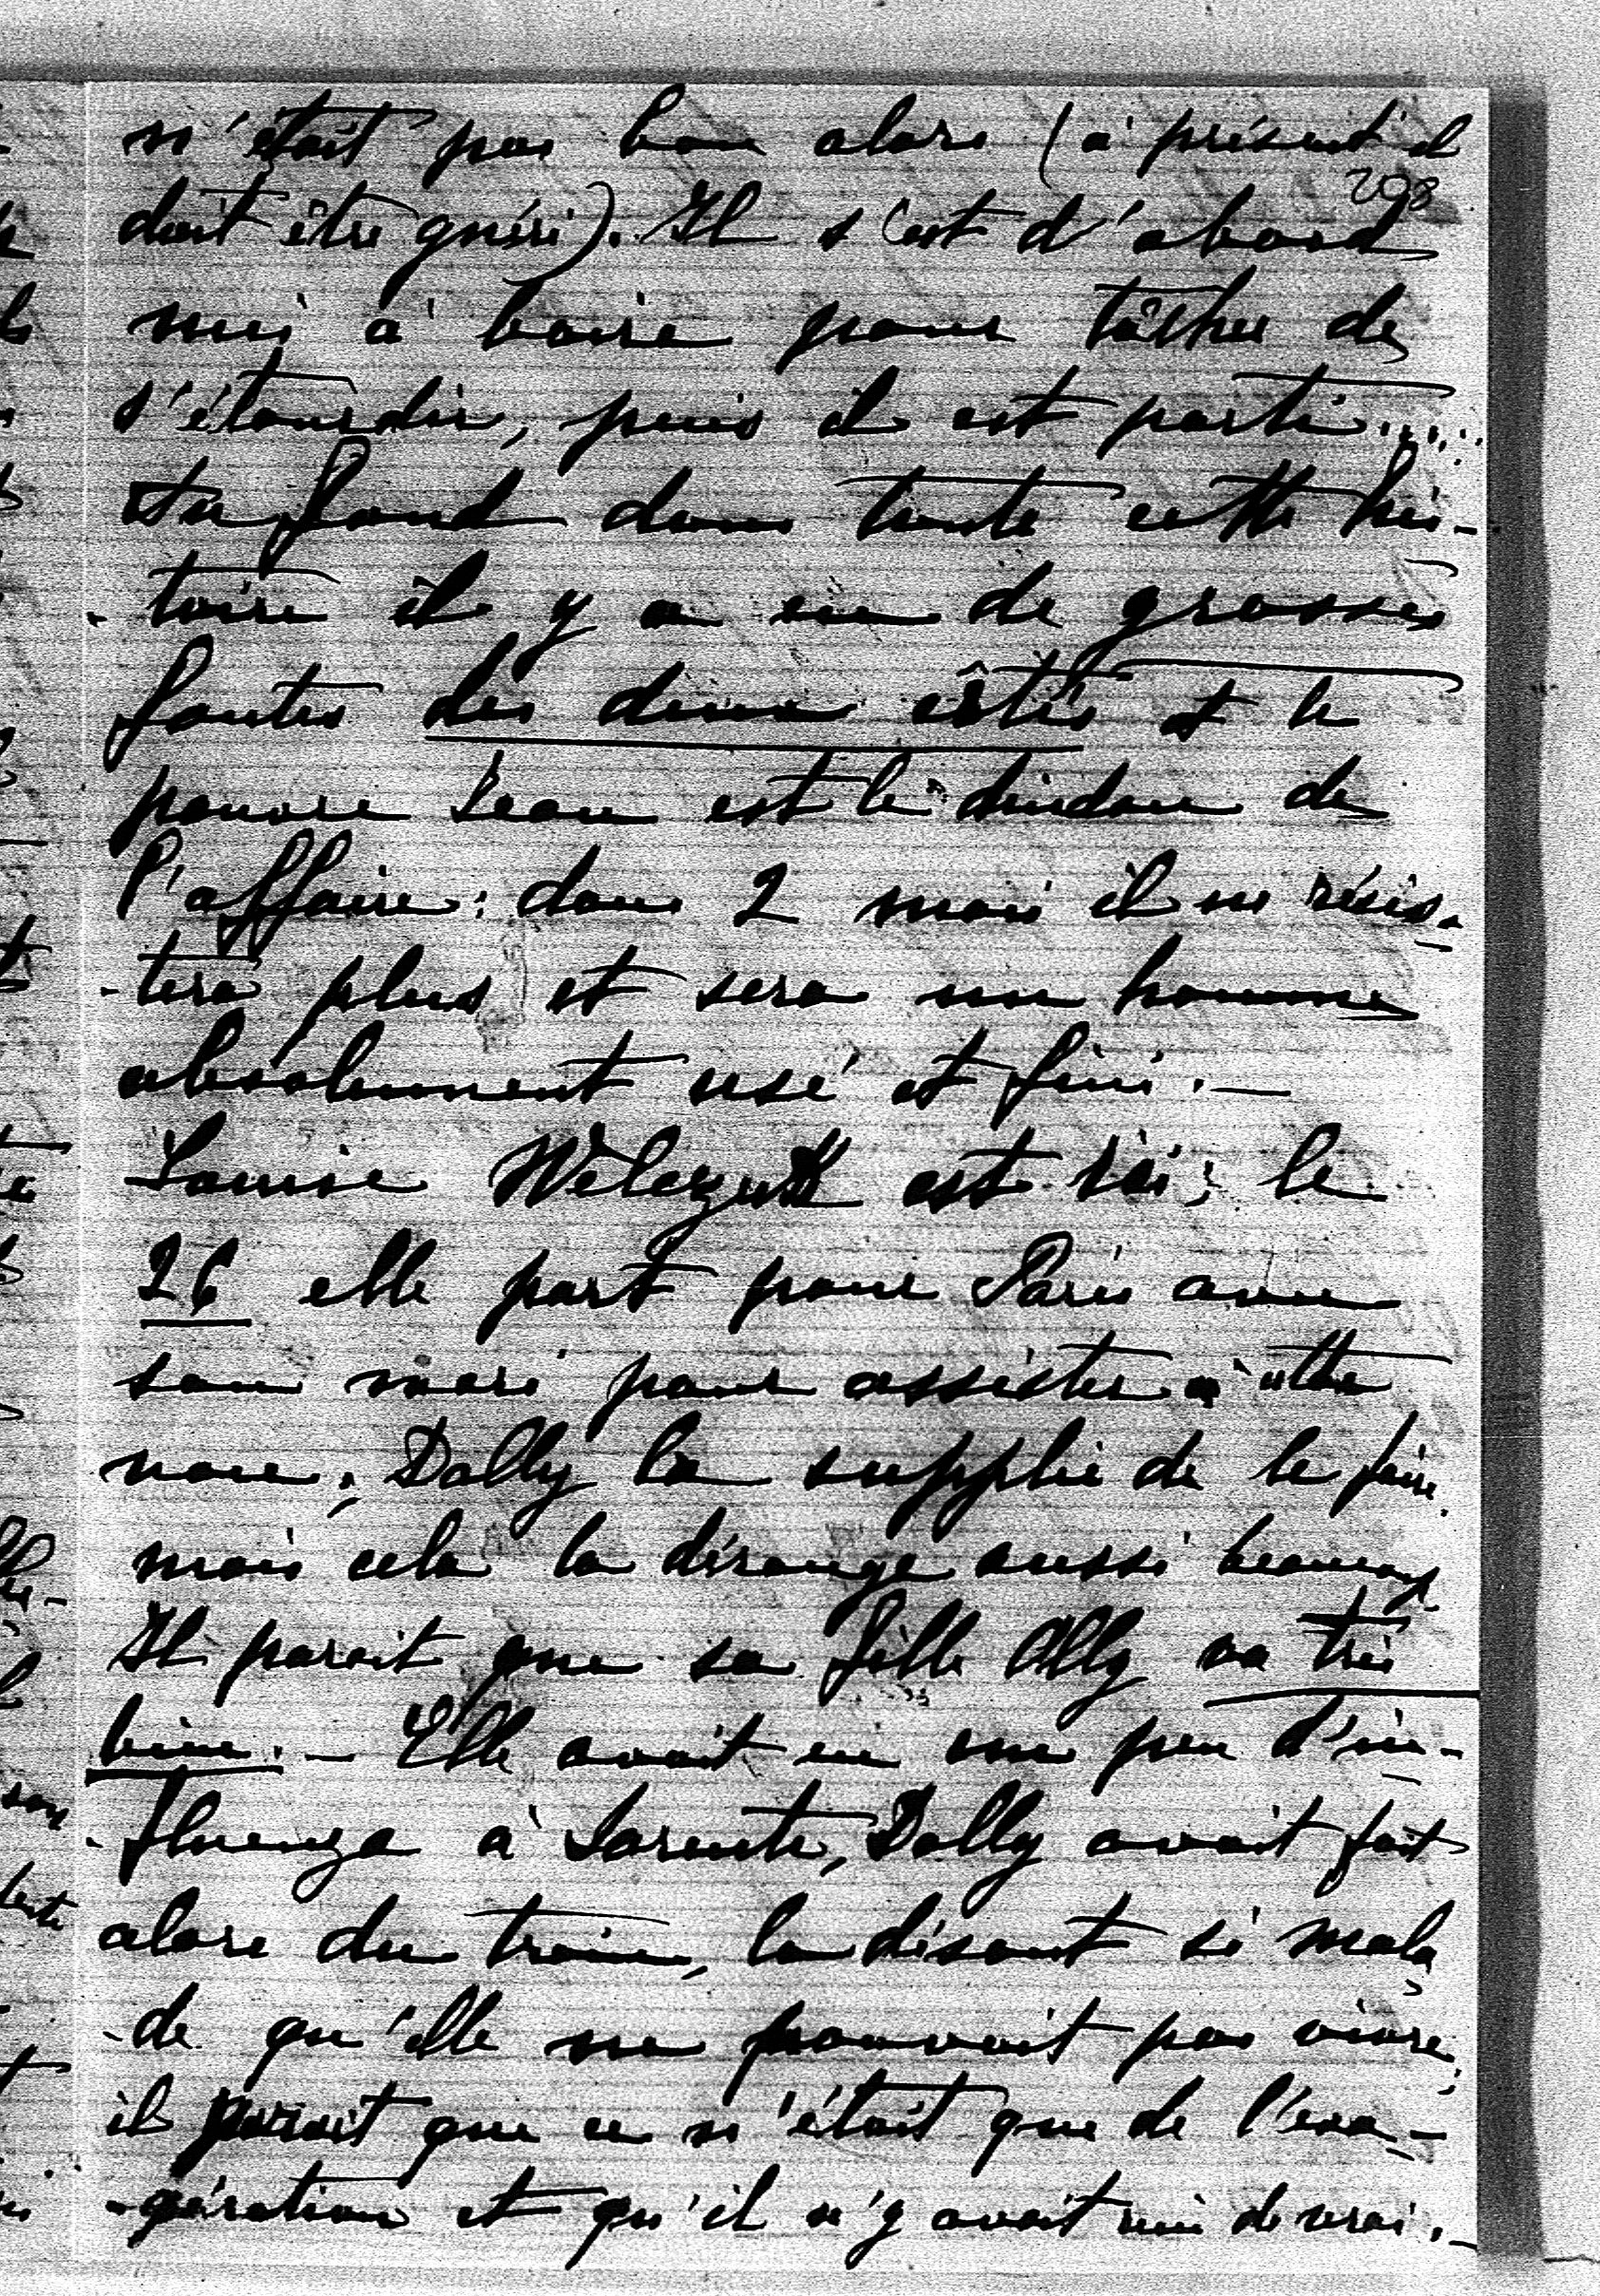 n'était pas bon alors (à présent il
208
doit être guéri). Il s'est d'abord
mis à boire pour tâcher de
s'étourdir, puis il est parti.....
Au fond dans toute cette his-
-toire il y a eu de grosses
fautes des deux côtés et le
pauvre Jean est le dindon de
l'affaire: dans 2 mois il ne résis-
-tera plus et sera un homme
absolument usé et fini. —
Louise Welczek est ici; le
26 elle part pour Paris avec
son mari pour assister à cette
noce; Dolly la supplie de le faire
mais cela la dérange aussi beaucoup
Il parait que sa fille Ally va très
bien. — Elle avait eu un peu d'in-
-fluenza à Sorente, Dolly avait fait
alors du train, la disant si mala
-de qu'elle ne pouvait pas vivre;
il parait que ce n'était que de l'exa-
-gération et qu'il n'y avait rien de vrai. —